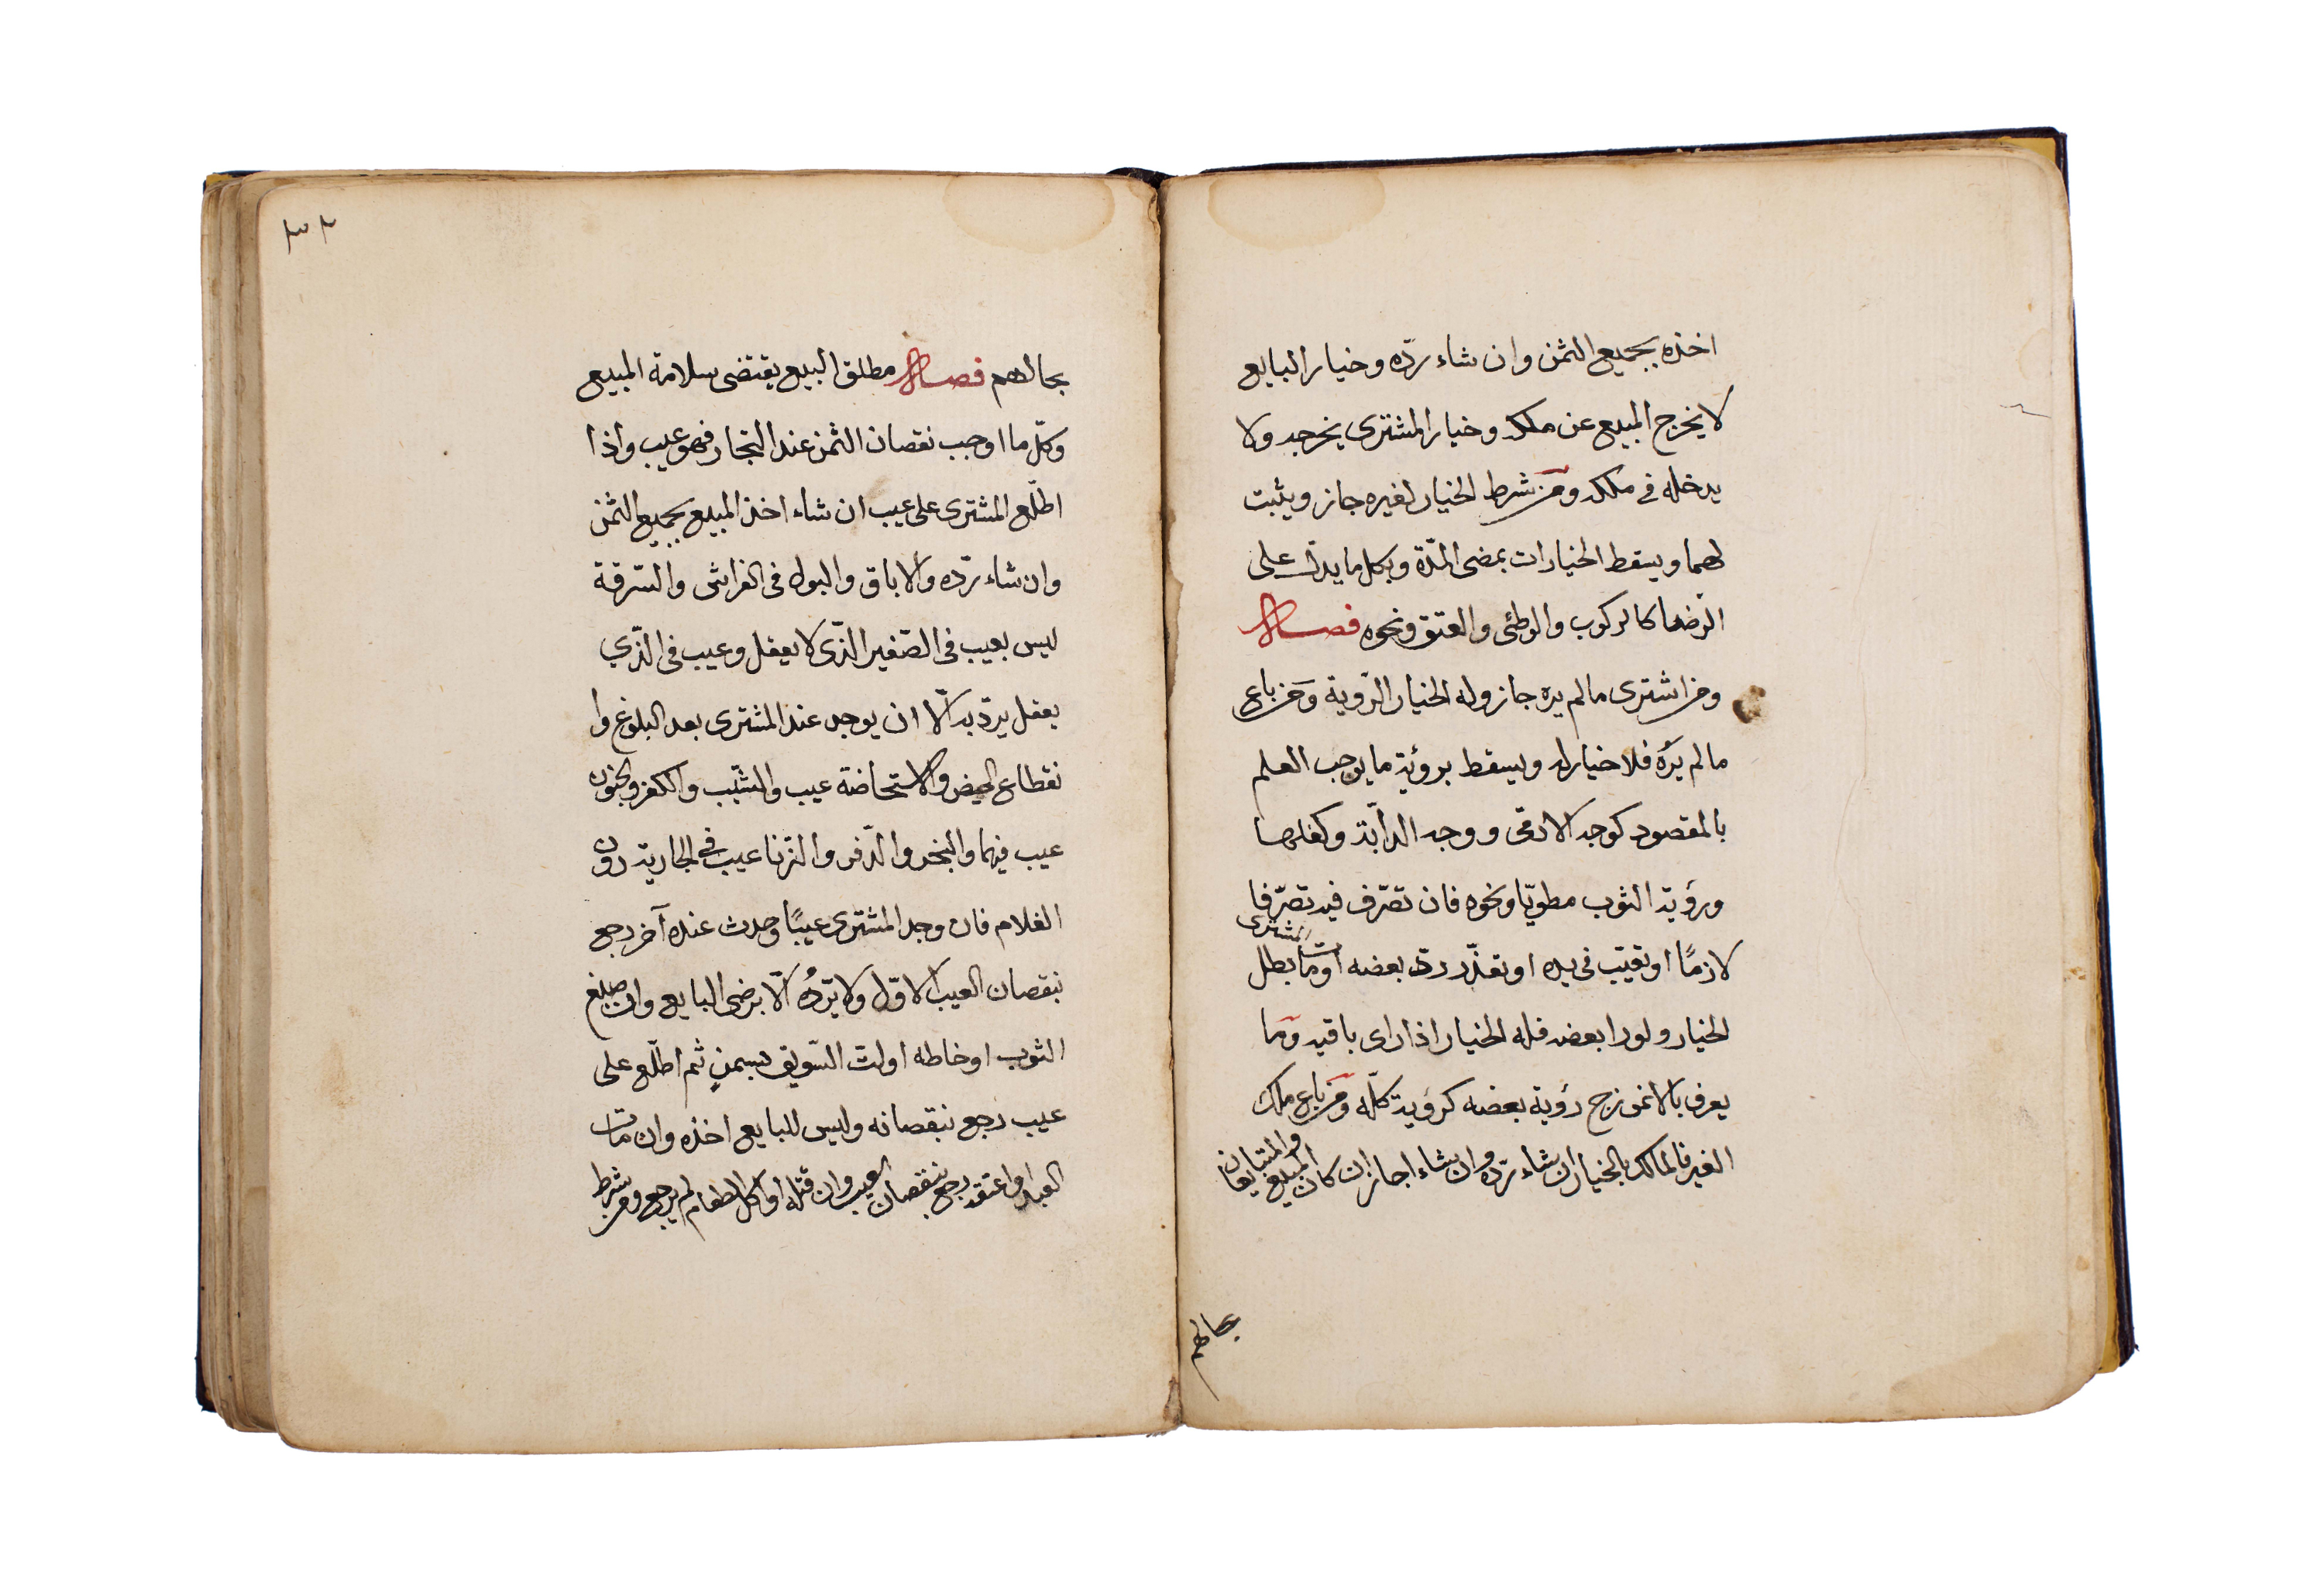 اخذه بجميع الثمن وان شاء ردّه وخيار البايع
لا يخرج المبيع عن ملكه وخيار المشترى يخرجه ولا
يدخله فى ملكه ومن شرط الخيار لغيره جاز ويثبت
لهما ويسقط الخيارات بمضى المدّة وبكل ما يدلّ على
الرّضا كالركوب والوطئى والعتق ونحوه فصل
ومن اشترى مالم يره جاز وله الخيار الرّوية ومن باع
مالم يَرُه فلا خيار له ويسقط برؤية ما يوجب العلم
بالمقصود كوجه الادمى ووجه الدابّة وكفلها
ورؤية الثوب مطويّا ونحوه فان تصرّف فيه تصرّفا
لازمًا او تعيّب فى يده او تعذّر ردّ بعضه او مات المشترى بطل
الخيار ولو را بعضه فله الخيار اذا راى باقيه وما
يعرف بالانموزج رؤية بعضه كرؤية كلّه ومن باع ملك
الغير فالمالك بالخيار ان شاء ردّه وان شاء اجاز ان كان المبيع والمتبايعان
بحالهم
٣٣
بحالهم فصل مطلق البيع يقتضى سلامة المبيع
وكلّ ما اوجب نقصان الثمن عند التجار فهو عيب واذا
اطلّع المشترى على عيب ان شاء اخذ المبيع بجميع الثمن
وان شاء ردّه والاباق والبول فى الفراش والسّرقة
ليس بعيب فى الصّغير الذّى لا يعقل وعيب فى الذّي
يعقل يردّ به الّا ان يوجد عند المشترى بعد البلوغ وا
نقطاع الحيض والاستحاضة عيب والشّيب والكفر والجنون
عيب فيهما والبخر والدّفر والزّنا عيب فى الجارية دون
الغلام فان وجد المشترى عيبًا وحدث عنده آخر رجع
بنقصان العيب الاوّل ولا يَردُّه الّا برضى البايع وان صبغ
الثوب او خاطه او لت السّويق بسمنٍ ثم اطلّع على
عيب رجع بنقصانه وليس للبايع اخذه وان مات
العبد او اعتقه رجع بنقصان العيب وان قتله او اكل الطعام لم يرجع ومن شرط